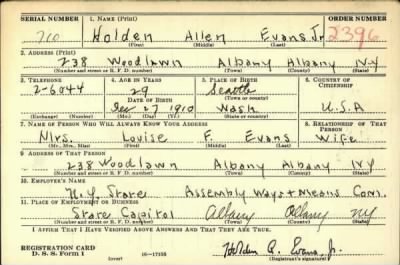 SERIAL NUMBER 1. NAME (Print) ORDER NUMBER
710 Holden Allen Evans, Jr. 2396
(First) (Middle) (Last)
2. ADDRESS (Print)
238 Woodlawn Albany Albany NY
(Number and street or R. F. D. number) (Town) (County) (State)
3. TELEPHONE 4. AGE IN YEARS 5. PLACE OF BIRTH 6. COUNTRY OF CITIZENSHIP
2-6044 29 Seattle
DATE OF BIRTH (Town or county)
Dec 27 1910 Wash U.S.A
(Exchange) (Number) (Mo.) (Day) (Yr.) (State or country)
7. NAME OF PERSON WHO WILL ALWAYS KNOW YOUR ADDRESS 8. RELATIONSHIP OF THAT PERSON
Mrs. Louise F. Evans Wife
(Mr., Mrs., Miss) (First) (Middle) (Last)
9. ADDRESS OF THAT PERSON
238 Woodlawn Albany Albany NY
(Number and street or R. F. D. number) (Town) (County) (State)
10. EMPLOYER'S NAME
N.Y. State Assembly Ways + Means Com.
11. PLACE OF EMPLOYMENT OR BUSINESS
State Capitol Albany Albany NY
(Number and street or R. F. D. number) (Town) (County) (State)
I AFFIRM THAT I HAVE VERIFIED ABOVE ANSWERS AND THAT THEY ARE TRUE.
REGISTRATION CARD
D. S. S. Form 1 (over) 16—17105 Holden A. Evans, Jr.